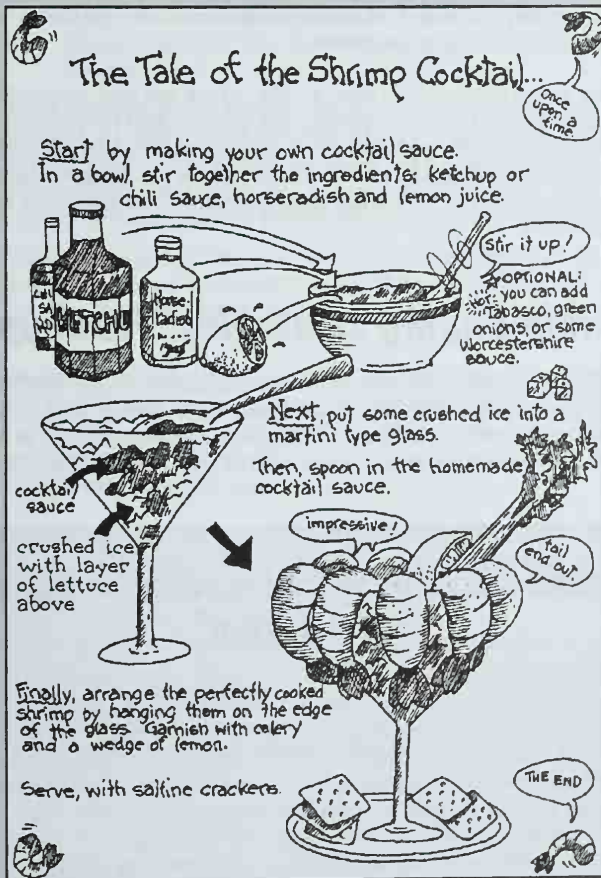 The Tale of the Shrimp Cocktail...
Once
upon a
time
Start by making your own cocktail sauce.
In a bowl, stir together the ingredients; ketchup or
chili sauce, horseradish and lemon juice.
KETCHU
Horse
Radish
Stir it up!
OPTIONAL:
you can add
Tabasco, green
onions, or some
Worcestershire
sauce.
Next, put some crushed ice into a
martini type glass.
Then, spoon in the homemade
cocktail sauce.
cocktail
sauce
crushed ice
with layer
of lettuce
above
impressive!
tail
end out.
Finally, arrange the perfectly cooked
shrimp by hanging them on the edge
of the glass. Garnish with celery
and a wedge of lemon.
Serve, with saltine crackers.
THE END